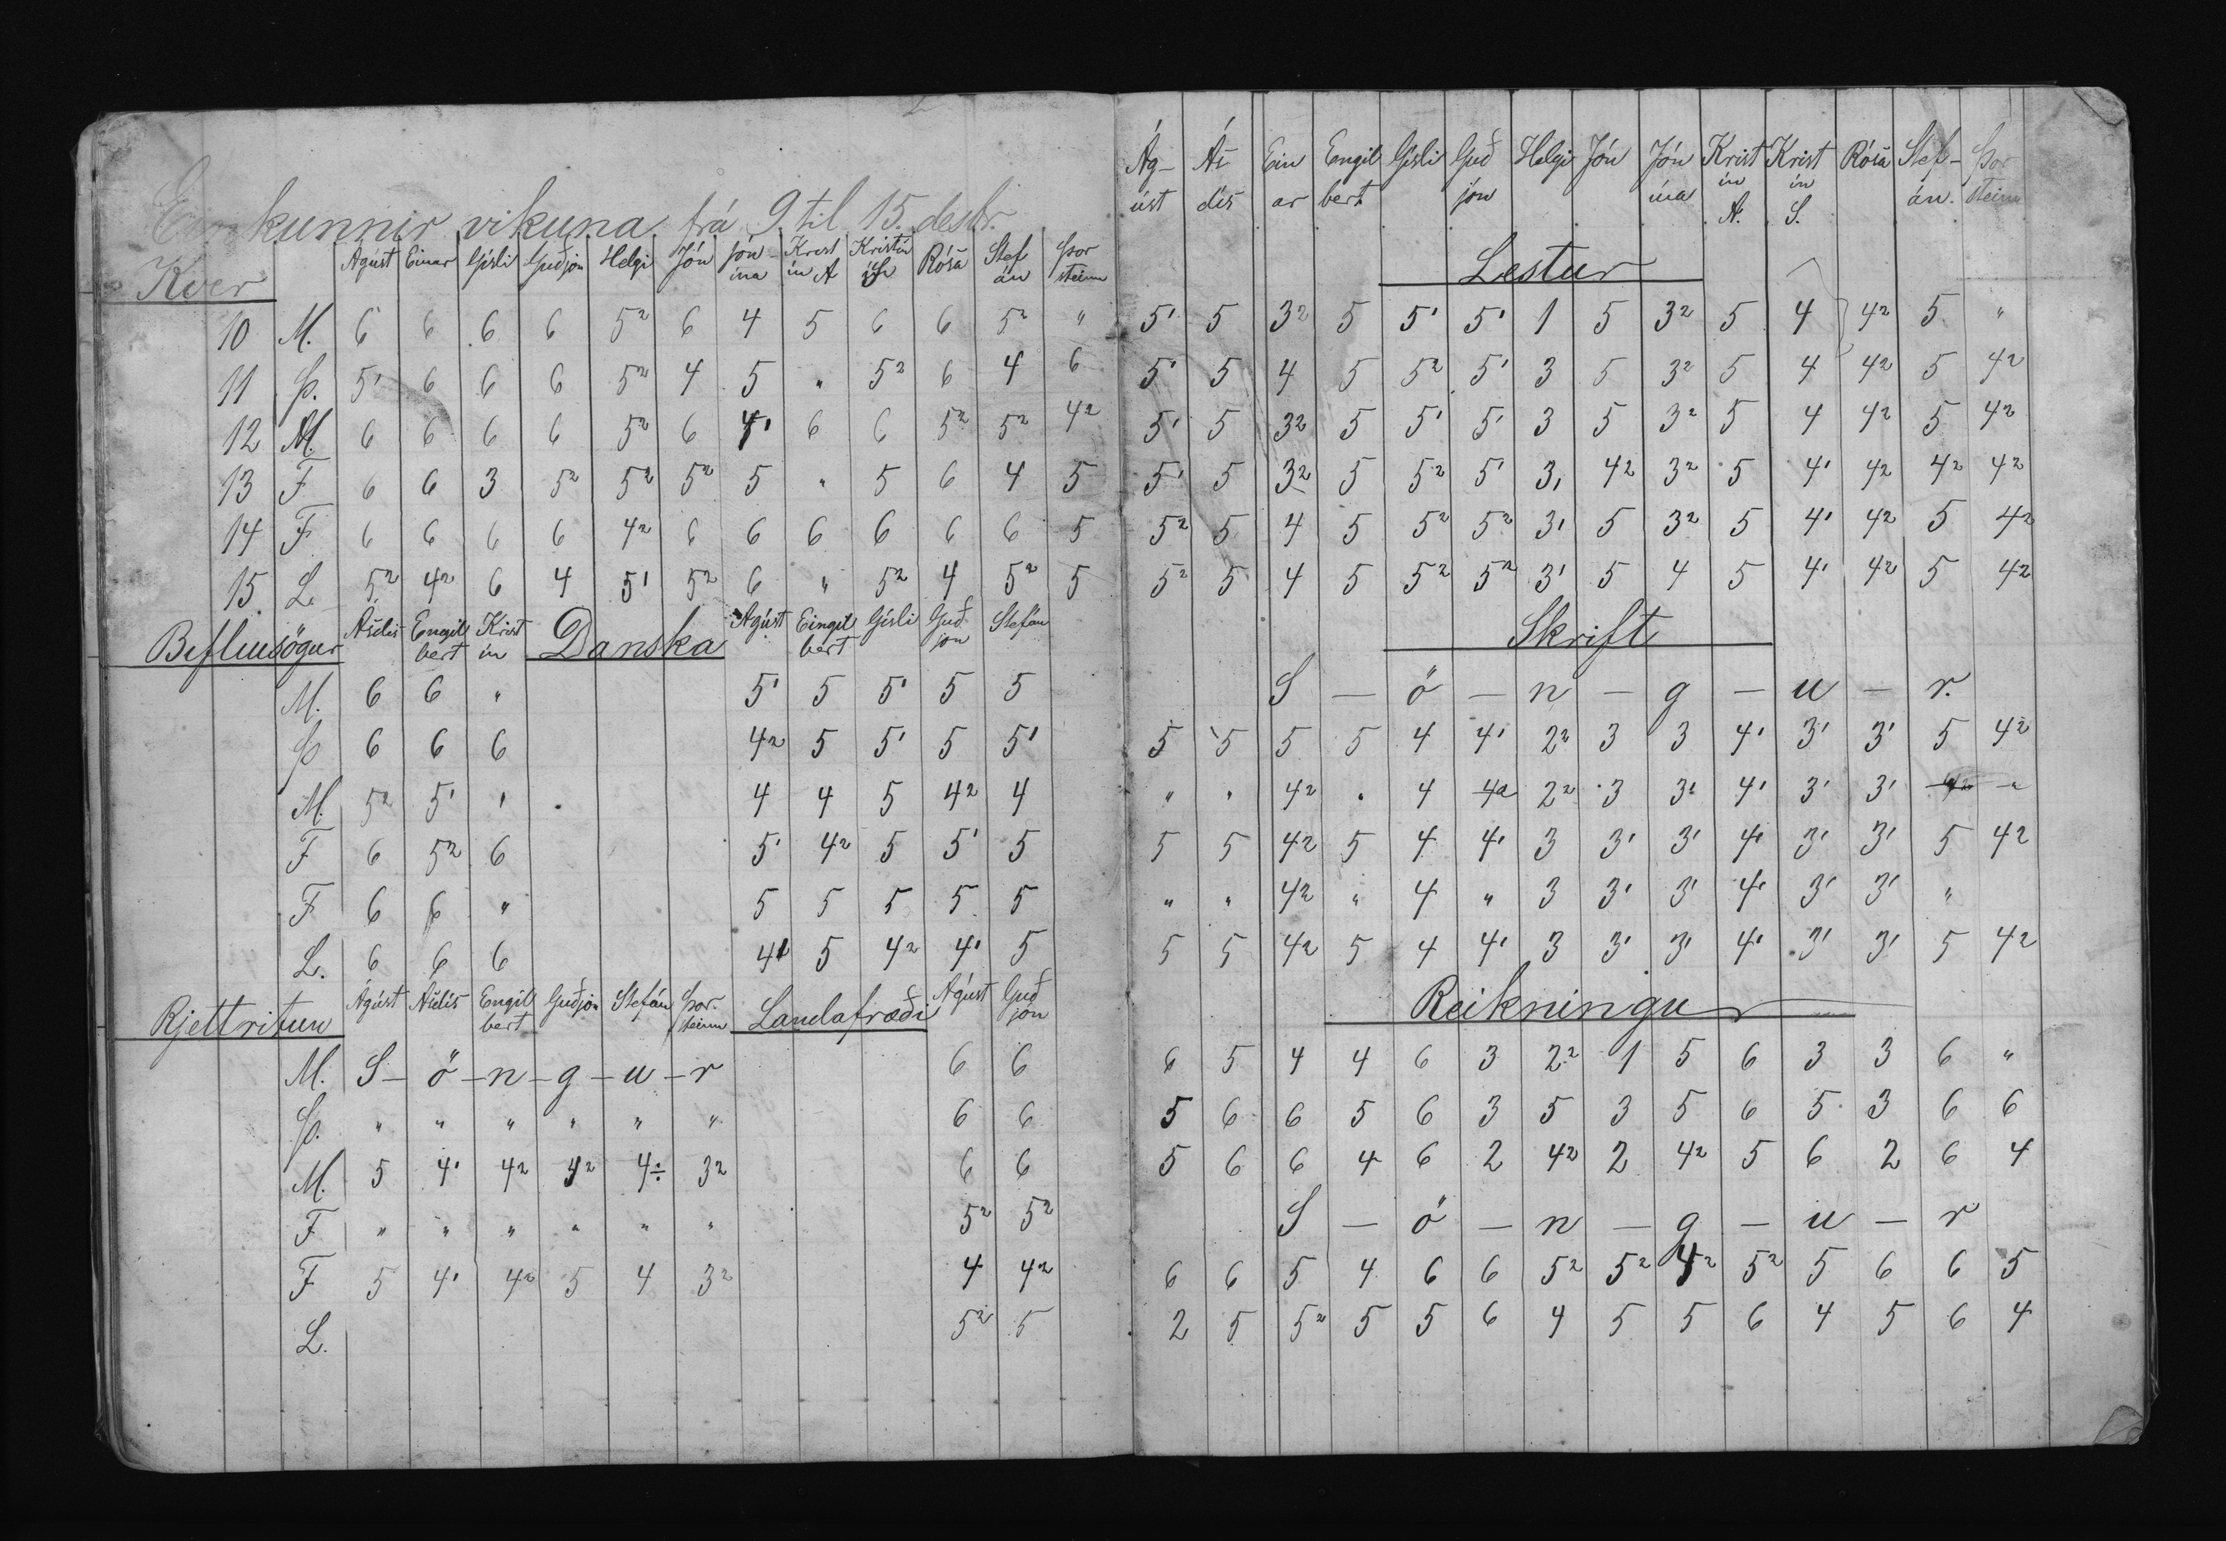 Einkunnir vikuna frá 9. til 15. desbr.
Kver Ágúst Einar Gísli Guðjón Helgi Jón Jónína Kristín A Kristín S Rósa Stefán Þorsteinn
10 M. 6 6 6 6 5² 6 4 5 6 6 5² "
11 Þ. 5' 6 6 6 5² 4 5 " 5² 6 4 6
12 M. 6 6 6 6 5² 6 4' 6 6 5² 5² 4²
13 F 6 6 3 5² 5² 5² 5 " 5 6 4 5
14 F 6 6 6 6 4² 6 6 6 6 6 6 5
15 L 5² 4² 6 4 5' 5² 6 " 5² 4 5² 5
Biflíusögur Ásdís Engilbert Kristín Danska Ágúst Eingilbert Gísli Guðjón Stefán
M. 6 6 " 5' 5 5' 5 5
Þ 6 6 6 4² 5 5' 5 5'
M. 5² 5' ' 4 4 5 4² 4
F 6 5² 6 5' 4² 5 5' 5
F 6 6 " 5 5 5 5 5
L. 6 6 6 4' 5 4² 4' 5
Rjettritun Ágúst Ásdís Engilbert Guðjón Stefán Þorsteinn Landafræði Ágúst Guðjón
M. S – ö – n – g – u – r 6 6
Þ. " " " " " " 6 6
M. 5 4' 4² 4² 4÷ 3² 6 6
F " " " " " " 5² 5²
F 5 4' 4² 5 4 3² 4 4²
L. 5² 5
Ágúst Ásdís Einar Engilbert Gísli Guðjón Helgi Jón Jónína Kristín A. Kristín S. Rósa Stefán. Þorsteinn
Lestur
5' 5 3² 5 5' 5' 1 5 3² 5 4 4² 5 "
5' 5 4 5 5² 5' 3 5 3² 5 4 4² 5 4²
5' 5 3² 5 5' 5' 3 5 3² 5 4 4² 5 4²
5' 5 3² 5 5² 5' 3, 4² 3² 5 4' 4² 4² 4²
5² 5 4 5 5² 5² 3' 5 3² 5 4' 4² 5 4²
5² 5 4 5 5² 5² 3' 5 4 5 4' 4² 5 4²
Skrift
S – ö – n – g – u – r.
5 5 5 5 4 4' 2² 3 3 4' 3' 3' 5 4²
" " 4² " 4 4² 2² 3 3' 4' 3' 3' 4² "
5 5 4² 5 4 4' 3 3' 3' 4' 3' 3' 5 4²
" " 4² " 4 " 3 3' 3' 4' 3' 3' "
5 5 4² 5 4 4' 3 3' 3' 4' 3' 3' 5 4²
Reikningur
6 5 4 4 6 3 2² 1 5 6 3 3 6 "
5 6 6 5 6 3 5 3 5 6 5 3 6 6
5 6 6 4 6 2 4² 2 4² 5 6 2 6 4
S – ö – n – g – u – r
6 6 5 4 6 6 5² 5² 4² 5² 5 6 6 5
2 5 5² 5 5 6 4 5 5 6 4 5 6 4